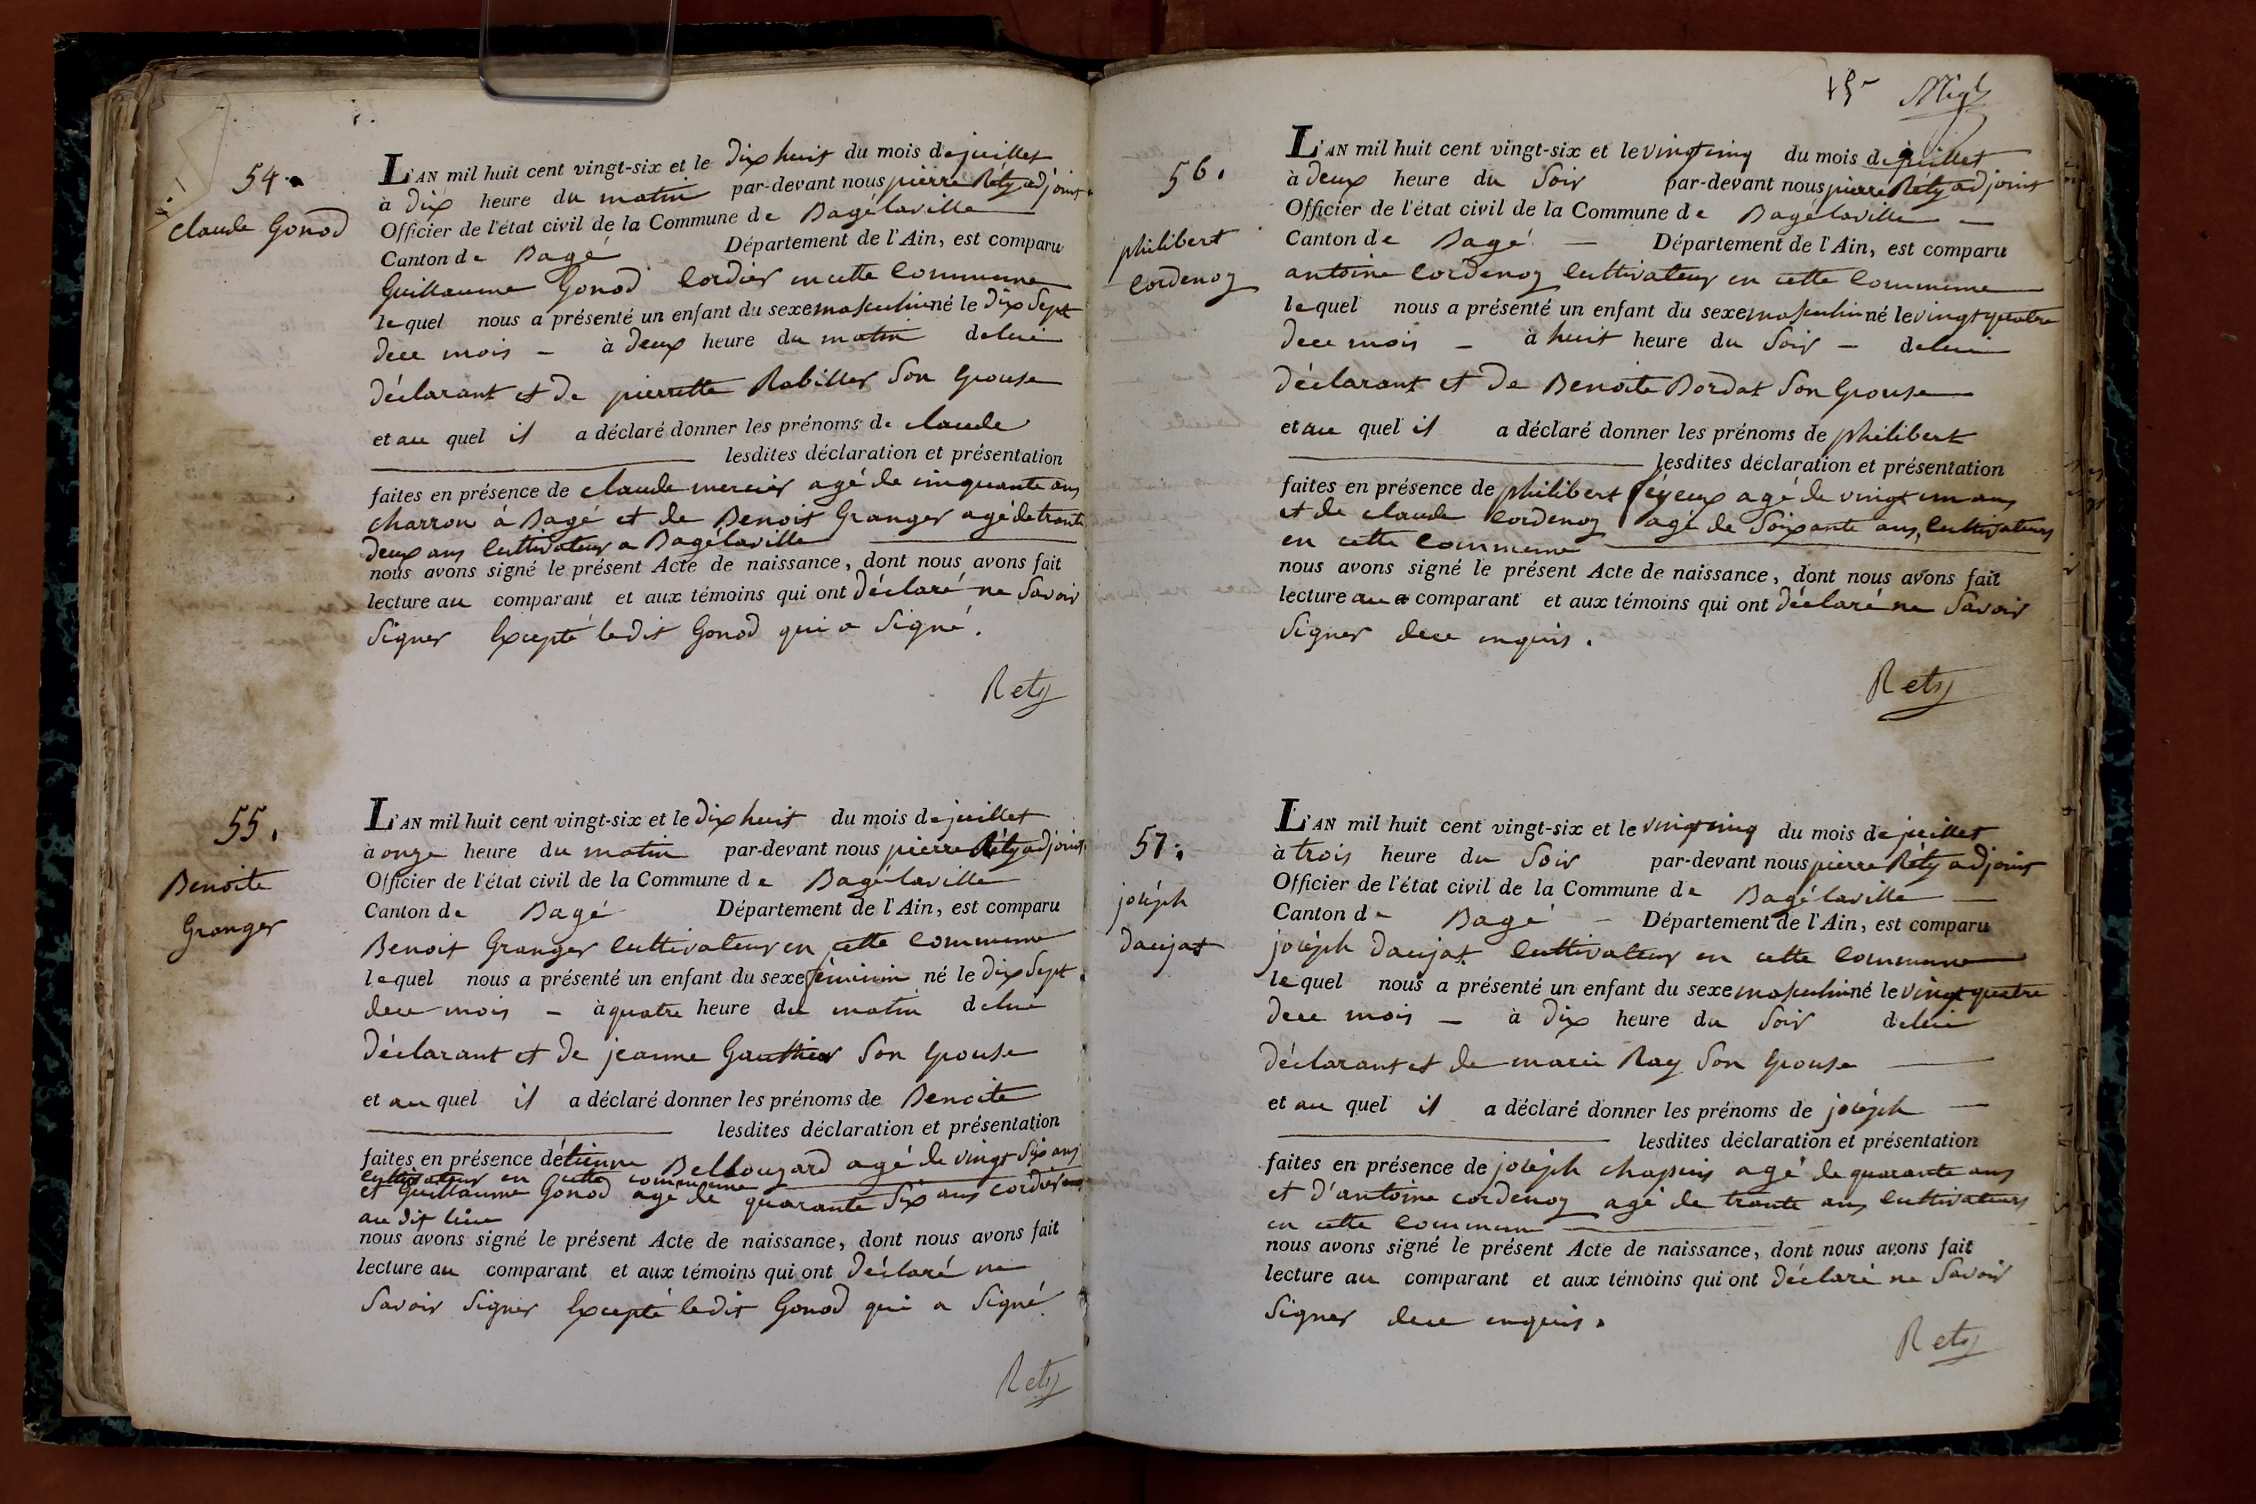 54.
claude Gonod
L'AN mil huit cent vingt-six et le dix huit du mois de juillet
à dix heure du matin par-devant nous pierre Réty adjoint
Officier de l'état civil de la Commune de Bagélaville
Canton de Bagé Département de l'Ain, est comparu
Guillaume Gonod Cordier en cette Commune
lequel nous a présenté un enfant du sexe masculin né le dix Sept
de ce mois - à deux heure du matin de lui
déclarant et de pierrette Rabiller Son épouse
et au quel il a déclaré donner les prénoms de claude
lesdites déclaration et présentation
faites en présence de claude mercier agé de cinquante ans
charron à Bagé et de Benoit Granger agé de trente
deux ans Cultivateur a Bagélaville
nous avons signé le présent Acte de naissance, dont nous avons fait
lecture au comparant et aux témoins qui ont déclaré ne Savoir
Signer Excepté ledit Gonod qui a Signé.
Rety
55.
Benoite
Granger
L'AN mil huit cent vingt-six et le dix huit du mois de juillet
à onze heure du matin par-devant nous pierre Réty adjoint
Officier de l'état civil de la Commune de Bagélaville
Canton de Bagé Département de l'Ain, est comparu
Benoit Granger Cultivateur en cette Commune
lequel nous a présenté un enfant du sexe féminin né le dix Sept
de ce mois - à quatre heure du matin de lui
déclarant et de jeanne Gauthier Son épouse
et au quel il a déclaré donner les prénoms de Benoite
lesdites déclaration et présentation
faites en présence détienne Bellouzard agé de vingt Six ans
cultivateur en cette commune
et Guillaume Gonod agé de quarante Six ans cordier
au dit lieu
nous avons signé le présent Acte de naissance, dont nous avons fait
lecture au comparant et aux témoins qui ont déclaré ne
Savoir Signer Excepté ledit Gonod qui a Signé
Rety
15
56.
philibert
Cordenoz
L'AN mil huit cent vingt-six et le vingt cinq du mois de juillet
à deux heure du Soir par-devant nous pierre Réty adjoint
Officier de l'état civil de la Commune de Bagélaville
Canton de Bagé Département de l'Ain, est comparu
antoine Cordenoz Cultivateur en cette Commune
lequel nous a présenté un enfant du sexe masculin né le vingt quatre
de ce mois - à huit heure du Soir - de lui
déclarant et de Benoite Bordat Son épouse
et au quel il a déclaré donner les prénoms de philibert
lesdites déclaration et présentation
faites en présence de philibert agé de vingt un ans
et de claude Cordenoz agé de Soixante ans, Cultivateurs
en cette Commune
nous avons signé le présent Acte de naissance, dont nous avons fait
lecture au comparant et aux témoins qui ont déclaré ne Savoir
Signer de ce enquis.
Rety
57.
joséph
daujat
L'AN mil huit cent vingt-six et le vingt cinq du mois de juillet
à trois heure du Soir par-devant nous pierre Réty adjoint
Officier de l'état civil de la Commune de Bagélaville
Canton de Bagé - Département de l'Ain, est comparu
joséph daujat Cultivateur en cette Commune
lequel nous a présenté un enfant du sexe masculin né le vingt quatre
de ce mois - à dix heure du Soir de lui
déclarant et de marie Ray Son épouse
et au quel il a déclaré donner les prénoms de joséph
lesdites déclaration et présentation
faites en présence de joséph chapuis agé de quarante ans
et d'antoine cordenoz agé de trente ans Cultivateurs
en cette Commune
nous avons signé le présent Acte de naissance, dont nous avons fait
lecture au comparant et aux témoins qui ont déclaré ne Savoir
Signer de ce enquis.
Rety